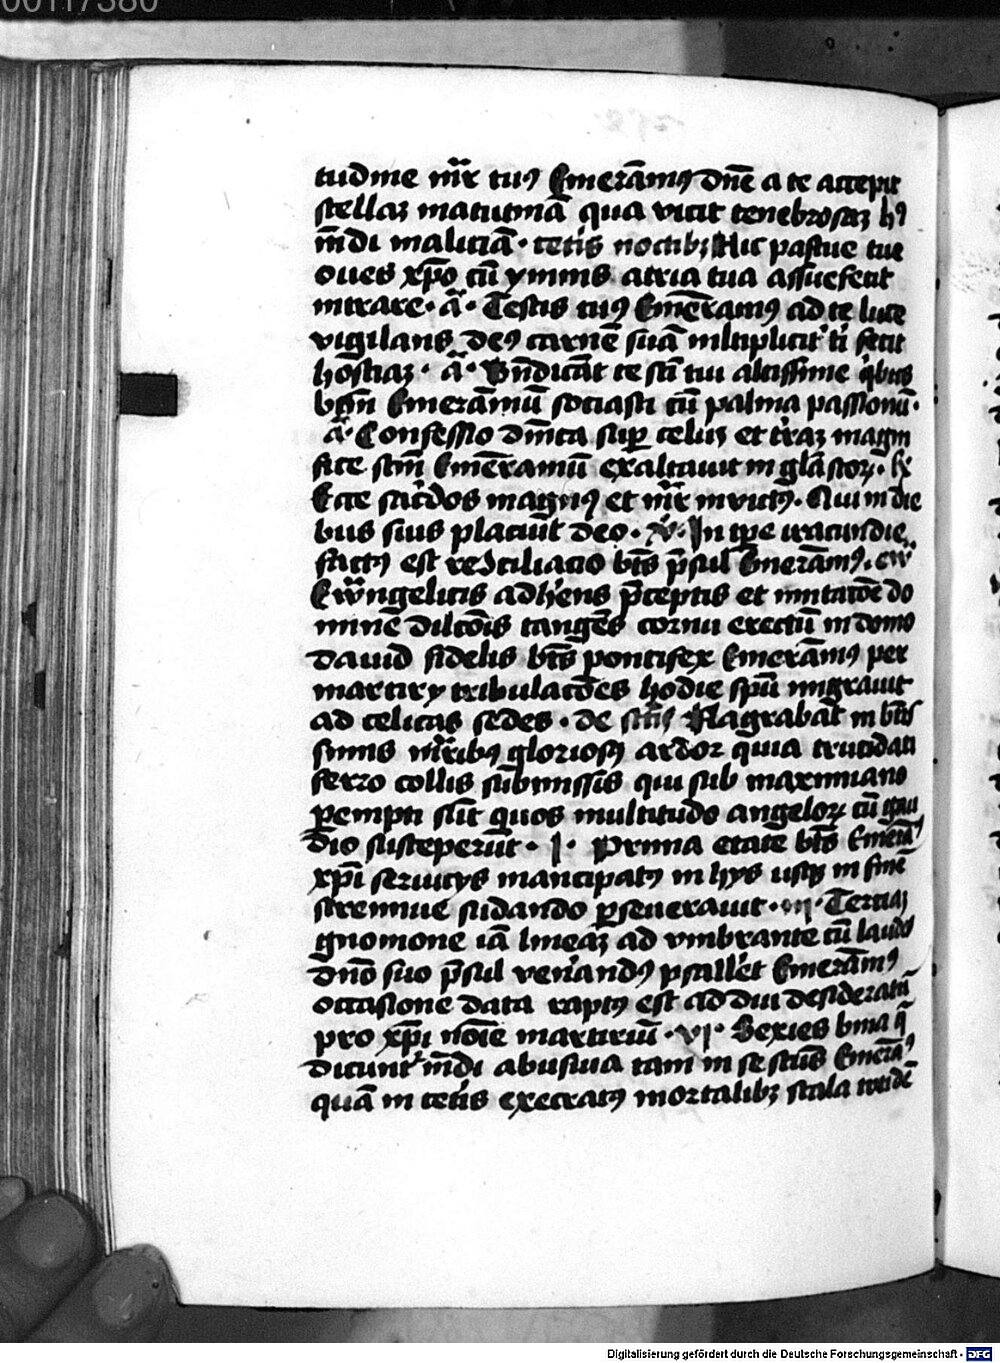 00117380
tudine mr̄ tuꝰ Emerāmꝰ dn̄e a te accepit
stellaꝫ matutinā qua vicit tenebrosaꝫ hꝰ
m̄di maliciā · cecis noctibꝫ Hic pascue tue
oues xp̄o cū ymnis atria tua assuefecit
intrare · a᷎ · Testis tuꝰ Emēramꝰ ad te luce
vigilans deꝰ carnē suā ml̄tiplicit᷑ t̄i fecit
hostiaꝫ · a᷎ · Bn̄dicāt te sc̄i tui altissime q̄bus
bt̄m Emerāmū sociasti cū palma passionū ·
a᷎ · Confessio dn̄ica suꝑ celuꝫ et t᷑raꝫ magni
fice scm̄ Emēramū exaltauit in gl̄a sc̄oꝝ ·
Ecce sac᷑dos magnꝰ et mr̄ inuictꝰ · Qui in die
bus suis placuīt deo · v᷎ · In tꝑe iracundie
factꝰ est reↄciliacio bt̄s p̄sul Emerāmꝰ · ew̄
Ew̄ngelicis adh᷑ens p̄ceptis et imitatōe do
mine dilc̄ōis tangēs cornu erectū in domo
dauid fidelis bt̄s pontifex Emerāmꝰ per
martiry tribulacōes hodie sp̄u migrauit
ad celicas sedes · de sc̄is Flagrabāt in btīs
simis mr̄ibꝰ gloriosꝰ ardor quia trucidati
ferro collis submissis qui sub maximiano
ꝑempti sūt quos multitudo angeloꝝ cū gau
dio susceperūt · I · Prima etate bt̄s Emerāꝰ
xp̄i seruicys mancipatꝰ in hys usqꝫ in finē
strennue sudando ꝑseuerauit · iij · Terciaꝫ
gnomone iā lineaꝫ ad vmbrante cū laudes
dn̄o suo p̄sul ven᷑andꝰ psallet Emerāmꝰ
occasione data raptꝰ est ad diu desideratū
pro xp̄i noīe martiriū · vj · Series bina q̄
dicunt᷑ m̄di abusiua tam in se sc̄us Emerāꝰ
quā in cecis execratꝰ mortalibꝫ scala totidē
Digitalisierung gefördert durch die Deutsche Forschungsgemeinschaft - DFG